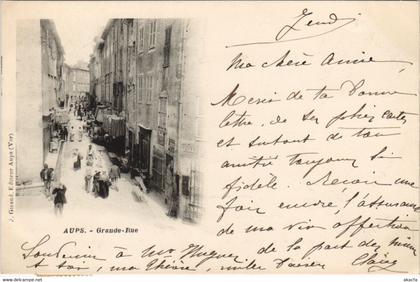 Jeudi
Ma chère Amie
Merci de ta bonne
lettre, de ses jolies cartes
et surtout de ton
amitié toujours si
fidèle. Reçois une
fois encore, l'assurance
de ma vive affection
de la part des miens
Souvenir à Mr Hugues
et toi, ma chérie, mille baisers
AUPS. - Grande-Rue
J. Girard, Editeur Aups (Var)